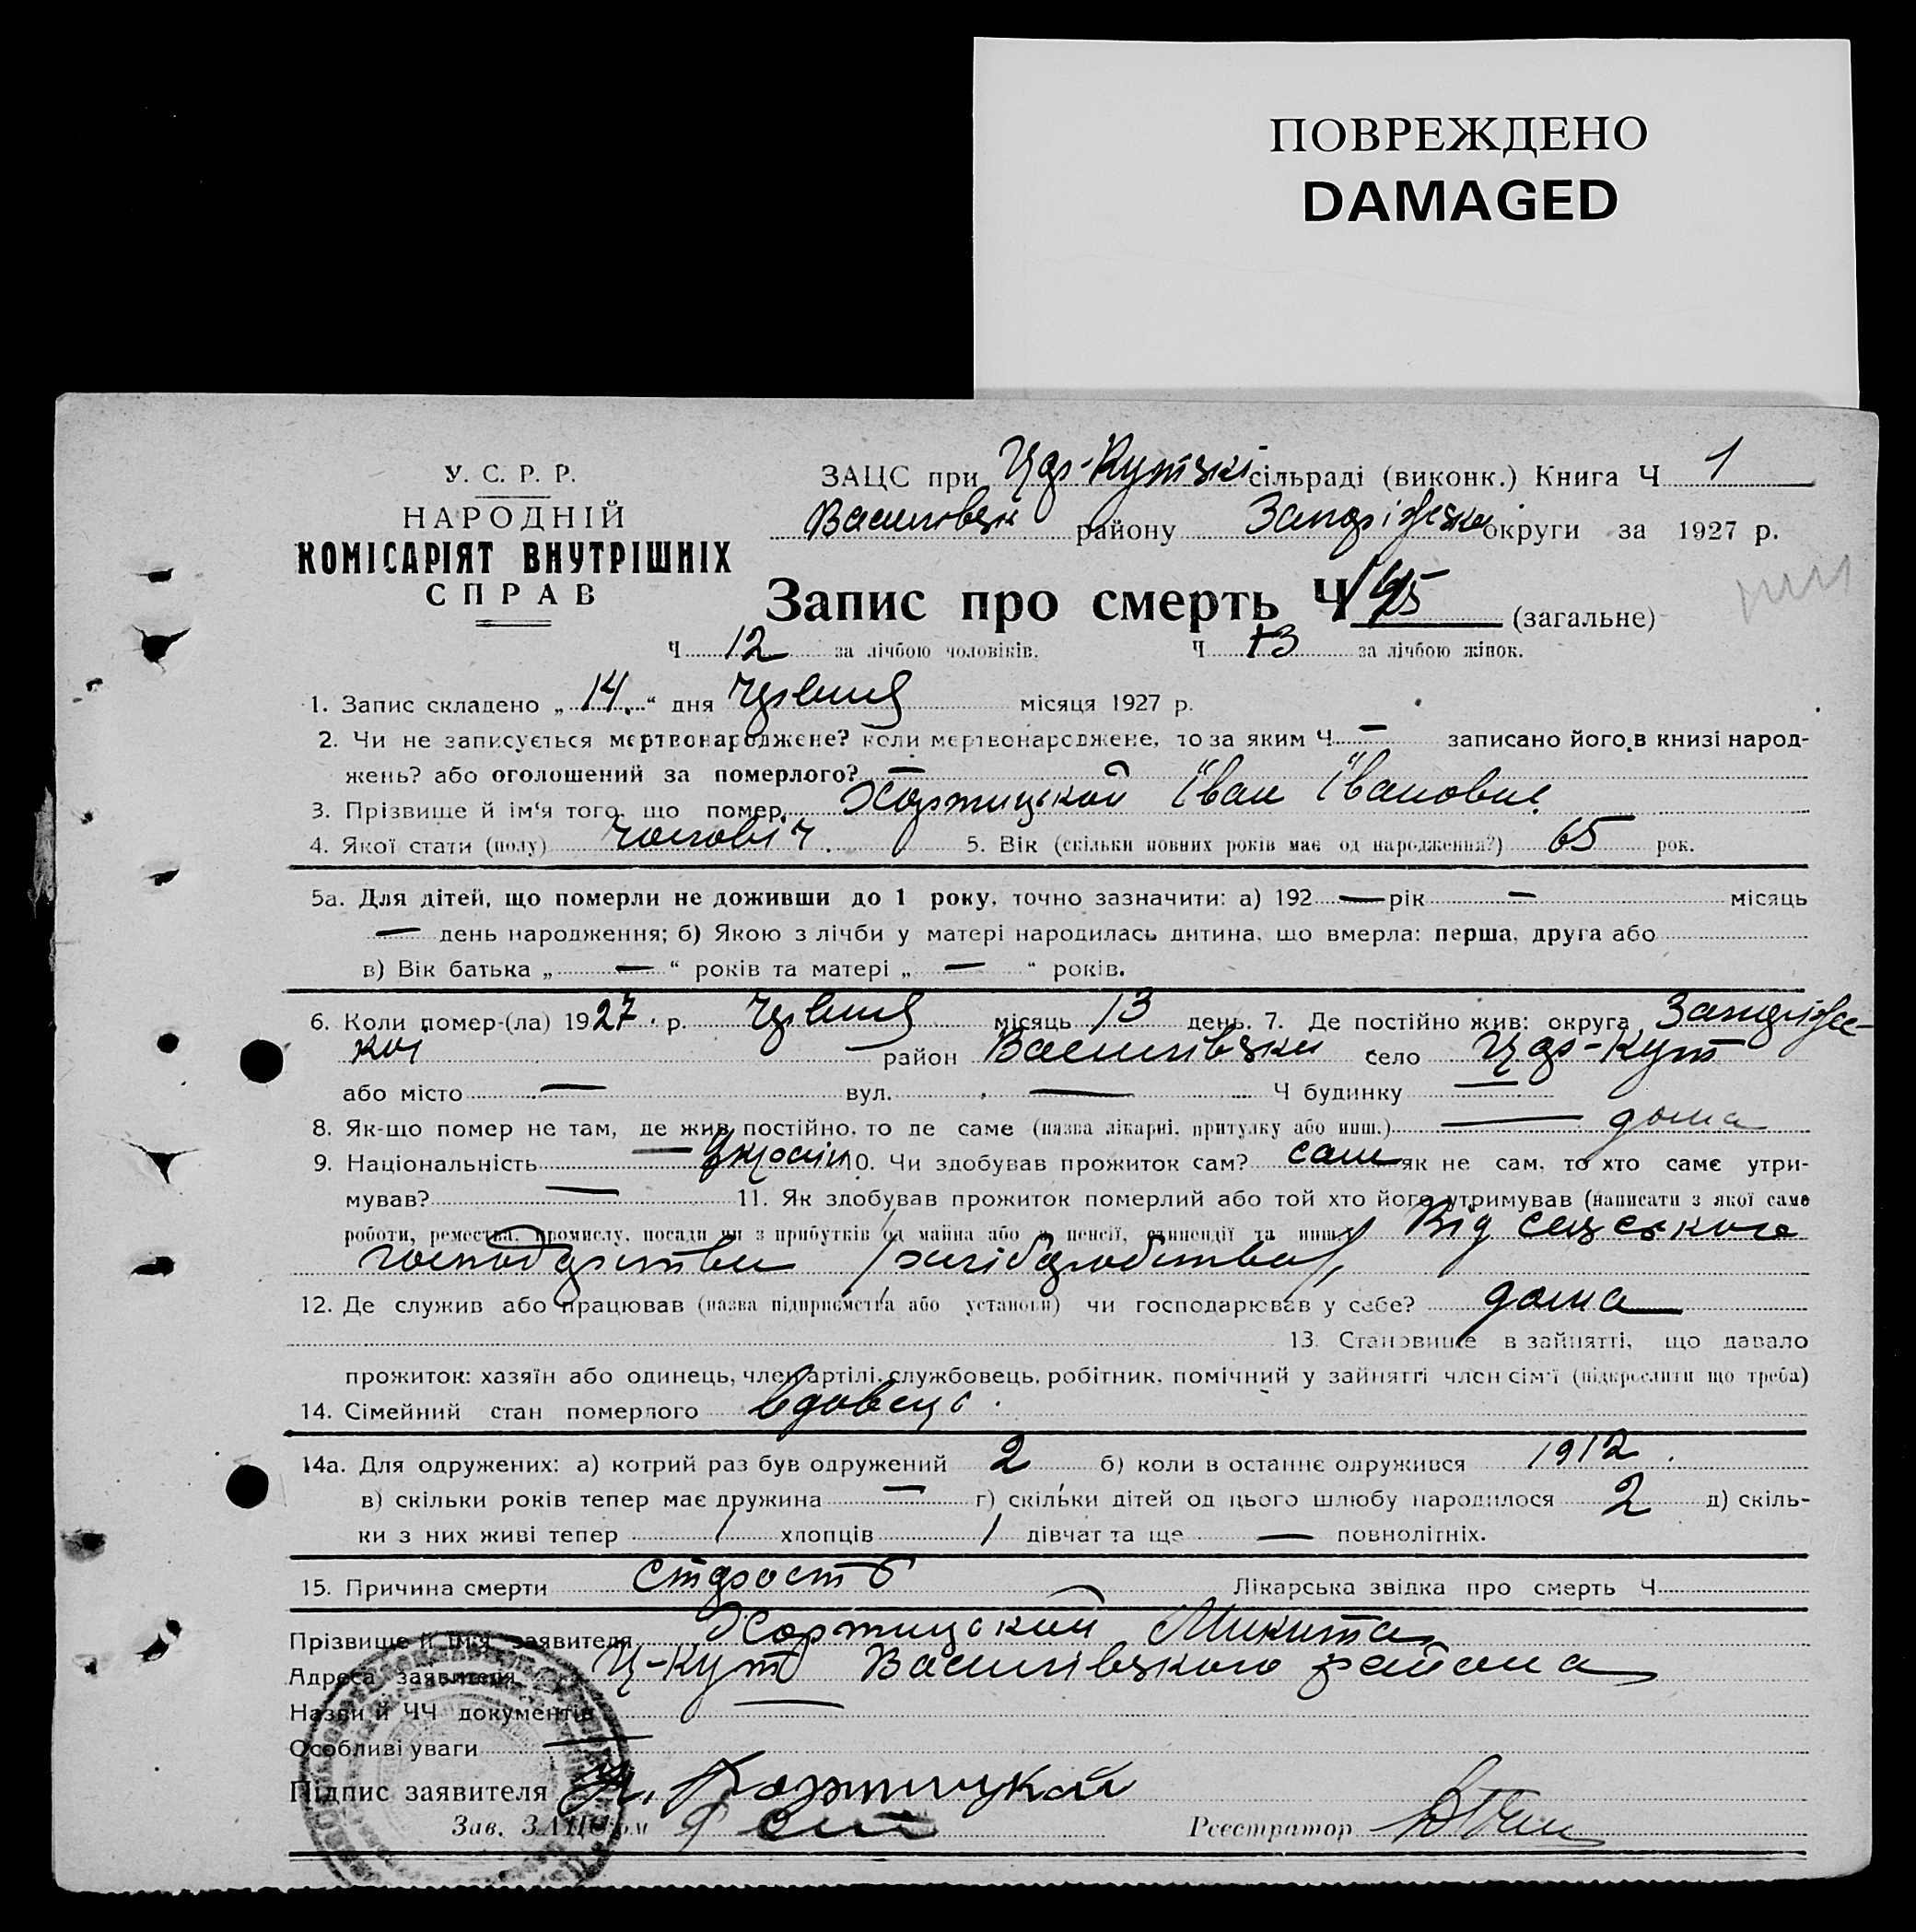 ПОВРЕЖДЕНО
DAMAGED
У. С. Р. Р.
НАРОДНІЙ
КОМІСАРІЯТ ВНУТРІШНІХ
СПРАВ
ЗАЦС при Цар-Кутські сільраді (виконк.) Книга Ч 1
Василівськ району Запоріжськ округи за 1927 р.
Запис про смерть Ч (загальне)
Ч 12 за лічбою чоловіків. Ч 13 за лічбою жінок.
1. Запис складено „ 14. “ дня червня місяця 1927 р.
2. Чи не записується мертвонароджене? коли мертвонароджене, то за яким Ч — записано його в книзі народ-
жень? або оголошений за померлого? —
3. Прізвище й ім'я того, що помер, Хортицький Іван Іванович
4. Якої стати (полу) чоловіч. 5. Вік (скільки повних років має од народження?) 65 рок.
5а. Для дітей, що померли не доживши до 1 року, точно зазначити: а) 192 — рік — місяць
— день народження; б) Якою з лічби у матері народилась дитина, що вмерла: перша, друга або
в) Вік батька „ — “ років та матері „ — “ років.
6. Коли помер-(ла) 1927 р. червня місяць 13 день. 7. Де постійно жив: округа Запоріжсь-
кої район Василівськи село Цар-Кут
або місто — вул. — Ч будинку —
8. Як-що помер не там, де жив постійно, то де саме (назва лікарні, притулку або инш.) — дома
9. Національність — Україн 10. Чи здобував прожиток сам? сам як не сам, то хто саме утри-
мував? — 11. Як здобував прожиток померлий або той хто його утримував (написати з якої саме
роботи, ремества, промислу, посади чи з прибутків од майна або з пенсії, стипендії та инш.) Від сельського
господарства /хліборобства/,
12. Де служив або працював (назва підприємства або установи) чи господарював у себе? дома
13. Становище в зайнятті, що давало
прожиток: хазяїн або одинець, член артілі, службовець, робітник, помічний у зайнятті член сім'ї (підкреслити що треба)
14. Сімейний стан померлого вдовець.
14а. Для одружених: а) котрий раз був одружений 2 б) коли в останнє одружився 1912.
в) скільки років тепер має дружина — г) скільки дітей од цього шлюбу народилося 2 д) скіль-
ки з них живі тепер 1 хлопців 1 дівчат та ще — повнолітніх.
15. Причина смерти старость Лікарська звідка про смерть Ч
Прізвище й ім'я заявителя Хортицький Микита
Адреса заявителя Ц-Кут Василівського района
Назви й ЧЧ документів —
Особливі уваги —
Підпис заявителя Н. Хортицкий
Зав. ЗАЦС'ом Реєстратор